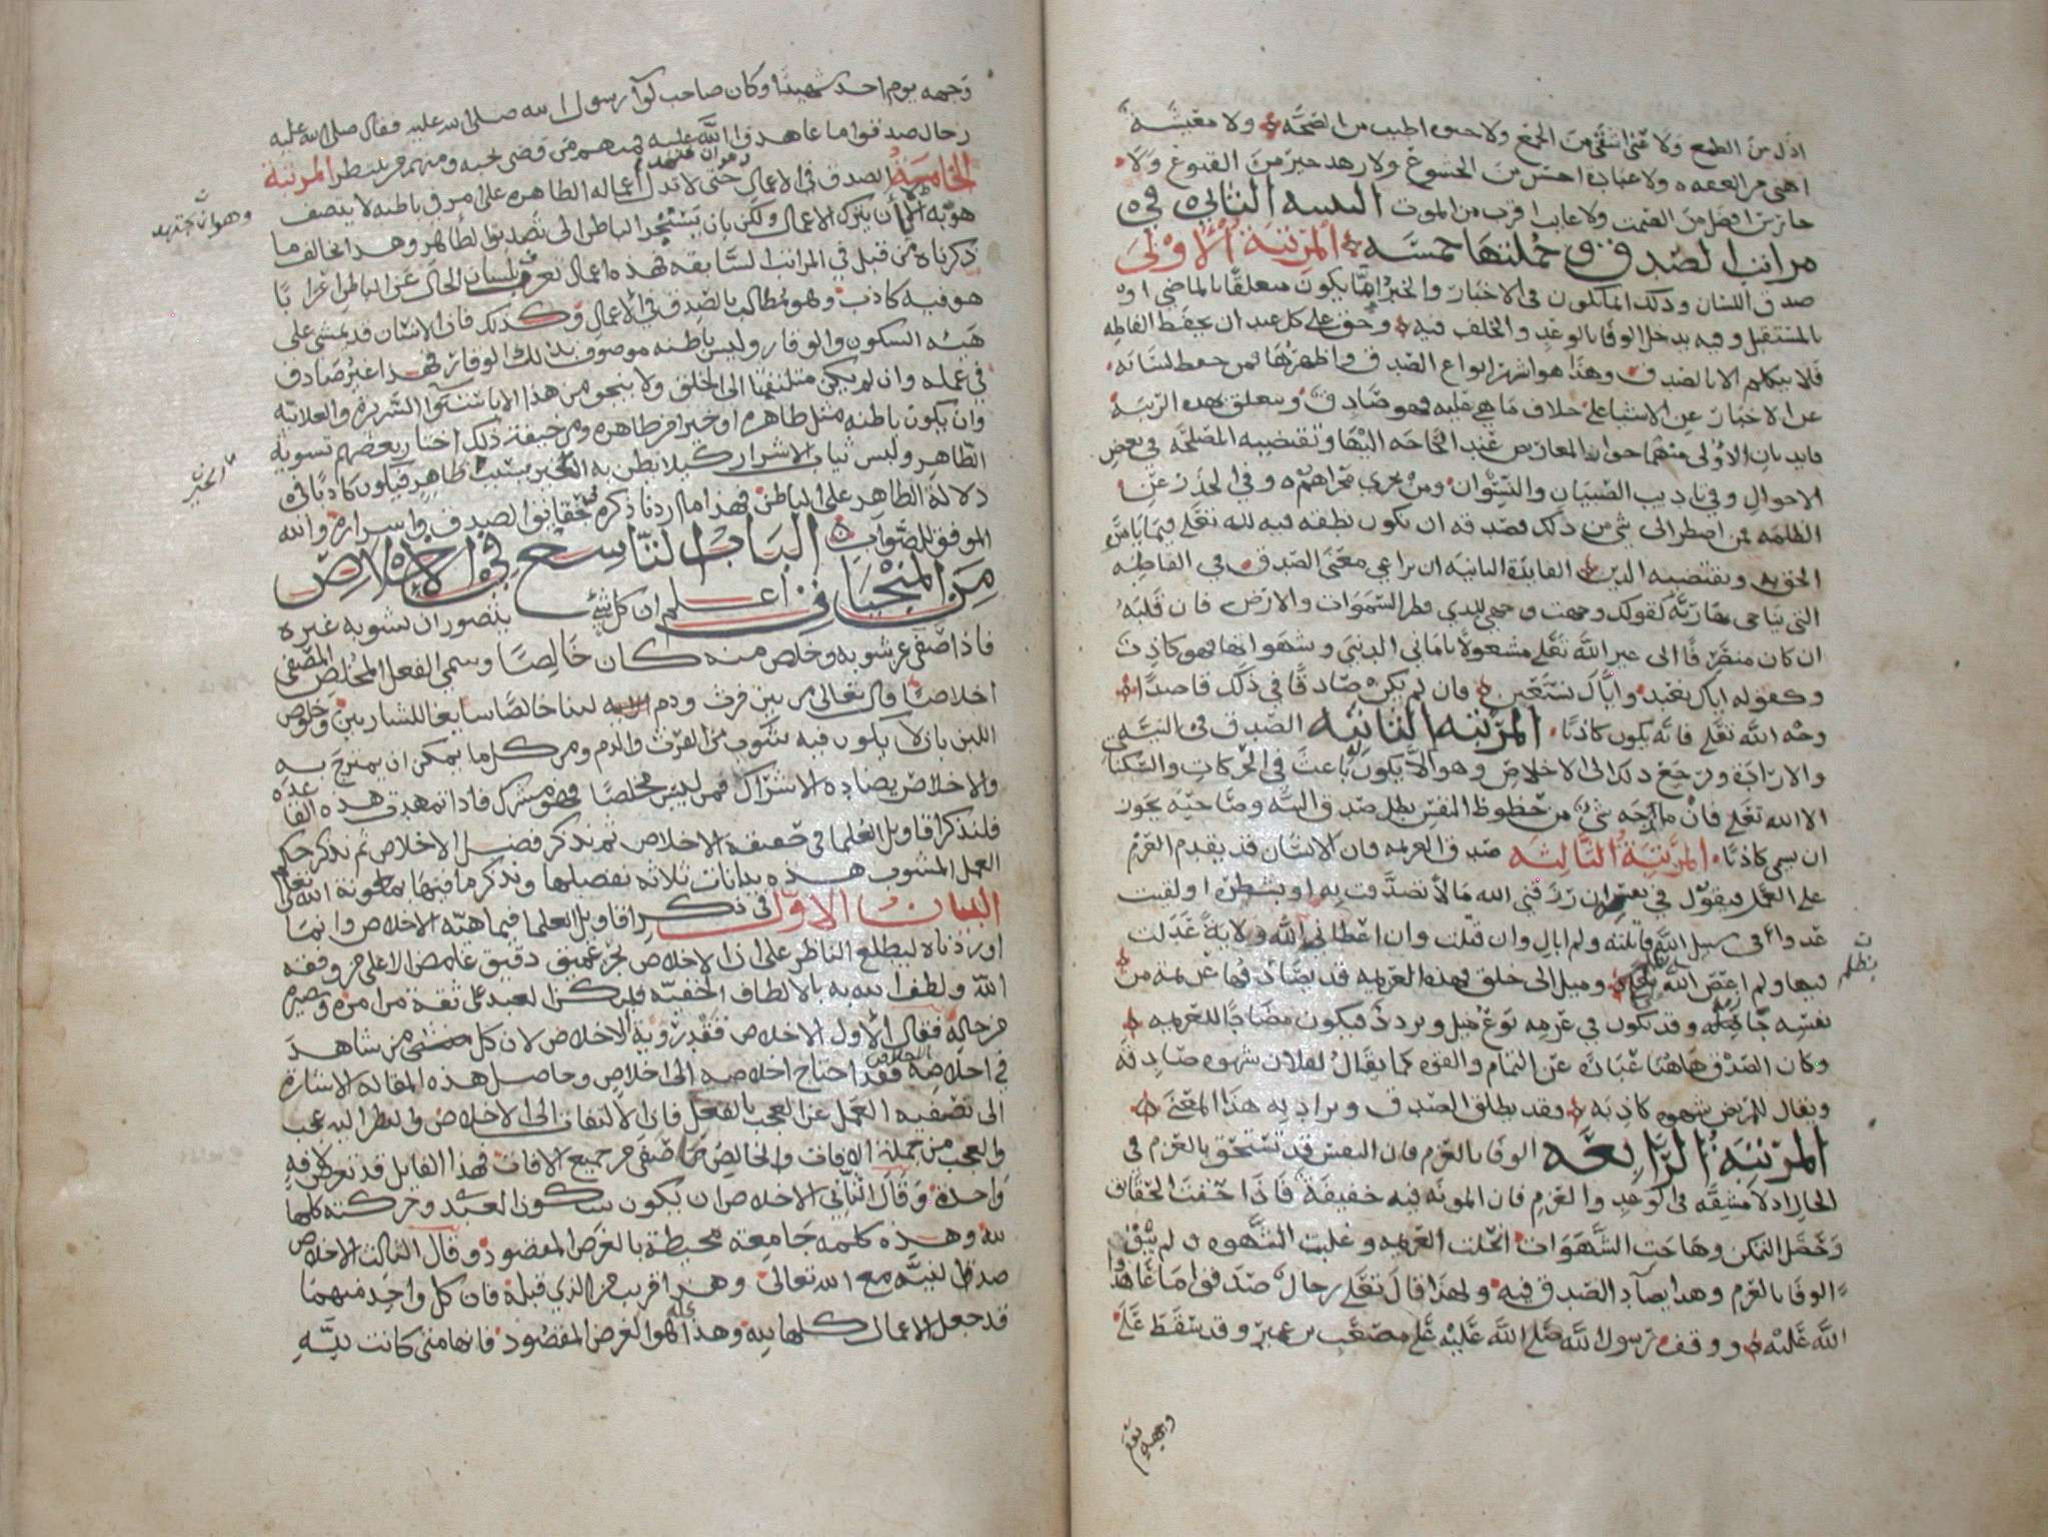 اذل من الطمع ولا غنى اشقى من الجمع ولا حيوه اطيب من الصحة ولا معيشة
اهنى من العفه ولا عبادة احسن من الخشوع ولا زهد خير من القنوع ولا
حارس افضل من الصمت ولا غايب اقرب من الموت التنبيه الثاني في
مراتب الصدق وجملتها خمسه المرتبة الاولى
صدق اللسان وذلك انما يكون في الاخبار والخبر اما يكون متعلقا بالماضي او
بالمستقبل وفيه يدخل الوفا بالوعد والخلف فيه وحق على كل عبد ان يحفظ الفاظه
فلا يتكلم الا بالصدق وهذا هو اشهر انواع الصدق واظهرها فمن حفظ لسانه
عن الاخبار عن الاشيا على خلاف ما هي عليه فهو صادق ويتعلق بهذه الرتبة
فايدتان الاولى منهما جواز المعاريض عند الحاجه اليها وتقتضيه المصلحه في بعض
الاحوال وفي تاديب الصبيان والنسوان ومن يجري مجراهم وفي الحذر عن
الظلمه فمن اضطر الى شي من ذلك فصدقه ان يكون نطقه فيه لله تعلى فيما يامره
الحق به ويقتضيه الدين الفايدة الثانيه ان يراعي معنى الصدق في الفاظه
التي يناجي بها ربه كقولك وجهت وجهي للذي فطر السموات والارض فان قلبه
ان كان منصرفا الى غير الله تعلى مشغولا باماني الدنيى وشهواتها فهو كاذب
وكقوله اياك نعبد واياك نستعين فان لم يكن صادقا في ذلك قاصدا
وجه الله تعلى فانه يكون كاذبا المرتبه الثانيه الصدق في النيه
والارادة ويرجع ذلك الى الاخلاص وهو الا يكون باعث في الحركات والسكنات
الا الله تعلى فان مازجه شي من حظوظ النفس بطل صدق النيه وصاحبه يجوز
ان يسمى كاذبا المرتبة الثالثه صدق العزيمه فان الانسان قد يقدم العزم
على العمل فيقول في نفسه ان رزقني الله مالا تصدقت به او بشطره او لقيت
عدوا في سبيل الله قاتلته ولم ابال وان قتلت وان اعطاني الله ولاية عدلت
فيها ولم اعص الله بظلم وميل الى خلق فهذه العزيمه قد يصادفها عزيمة من
نفسه جازمه وقد يكون في عزمه نوع ميل وتردد فيكون مضادا للعزيمه
وكان الصدق هاهنا عبارة عن التمام والقوه كما يقال لفلان شهوه صادقه
ويقال للمريض شهوه كاذبه وقد يطلق الصدق ويراد به هذا المعنى
المرتبة الرابعه الوفا بالعزم فان النفس قد تستحق بالعزم في
الحال اذ لا مشقه في الوعد والعزم فان المونه فيه خفيفة فاذا حقت الحقايق
وحصل التمكن وهاجت الشهوات انحلت العزيمه وغلبت الشهوه ولم يتفق
الوفا بالعزم وهذا يضاد الصدق فيه ولهذا قال تعلى رجال صدقوا ما عاهدوا
الله عليه ووقف رسول الله صلى الله عليه على مصعب بن عمير وقد سقط على
وجهه يوم
بظلم
وجهه يوم احد شهيدا وكان صاحب لوآ رسول الله صلى الله عليه فقال صلى الله عليه
رجال صدقوا ما عاهدوا الله عليه فمنهم من قضى نحبه ومنهم من ينتظر المرتبة
الخامسة الصدق في الاعمال حتى لا تدل اعماله الظاهره على امر في باطنه لا يتصف
هو به لا ان يترك الاعمال ولكن بان يستجر الباطن الى تصديق الظاهر وهذا يخالف ما
ذكرناه من قبل في المراتب السابقه فهذه اعمال تعرف بلسان الحال عن الباطن اعرابا
هو فيه كاذب وهو مطالب بالصدق في الاعمال وكذلك فان الانسان قد يمشي على
هيئه السكون والوقار وليس باطنه موصوف بذلك الوقار فهذا غير صادق
في عمله وان لم يكن ملتفتا الى الخلق ولا ينجو من هذا الا باستوا السريرة والعلانيه
وان يكون باطنه مثل ظاهره او خيرا من ظاهره ومن خيفة ذلك اختار بعضهم تسوية
الظاهر ولبس ثياب الاشرار كيلا يظن به الخير بسبب ظاهره فيكون كاذبا في
دلالة الظاهر على الباطن فهذا ما اردنا ذكره من حقايق الصدق واسراره والله
الموفق للصواب الباب التاسع في الاخلاص
من المنجيات اعلم ان كل شئ يتصور ان يشوبه غيره
فاذا صفى عن شوبه وخلص منه كان خالصا وسمي الفعل المخلص المصفى
اخلاصا قال تعالى من بين فرث ودم لبنا خالصا سايغا للشاربين وخلوص
اللبن بان لا يكون فيه شوب من الفرث والدم ومن كل ما يمكن ان يمتزج به
والاخلاص يضاده الاشراك فمن ليس مخلصا فهو مشرك فاذا تمهدت هذه القاعده
فلنذكر اقاويل العلما في حقيقة الاخلاص ثم نذكر فضل الاخلاص ثم نذكر حكم
العمل المشوب هذه بيانات ثلاثه نفصلها ونذكر ما فيها بمعونة الله تعالى
البيان الاول في ذكر اقاويل العلما فيما هيه الاخلاص وانما
اوردناه ليطلع الناظر على ان الاخلاص بحر عميق دقيق غامض الا على من وفقه
الله ولطف به بالالطاف الخفيه فليكن العبد على ثقة من امره وبصيره
من حاله فقال الاول الاخلاص فقد رؤية الاخلاص لان كل من شاهد
في اخلاصه الاخلاص فقد احتاج اخلاصه الى اخلاص وحاصل هذه المقاله الاشارة
الى تصفيه العمل عن العجب بالفعل فان الالتفات الى الاخلاص والنظر اليه عجب
والعجب من جملة الافات والخالص ما صفى من جميع الافات فهذا القايل قد تعرض لافة
واحدة وقال الثاني الاخلاص ان يكون سكون العبد وحركته كلها
لله وهذه كلمه جامعة محيطة بالغرض المقصود وقال الثالث الاخلاص
صدق النيه مع الله تعالى وهذا قريب من الذي قبله فان كل واحد منهما
قد جعل الاعمال كلها لله وهذا كله هو الغرض المقصود فانها متى كانت بنيه